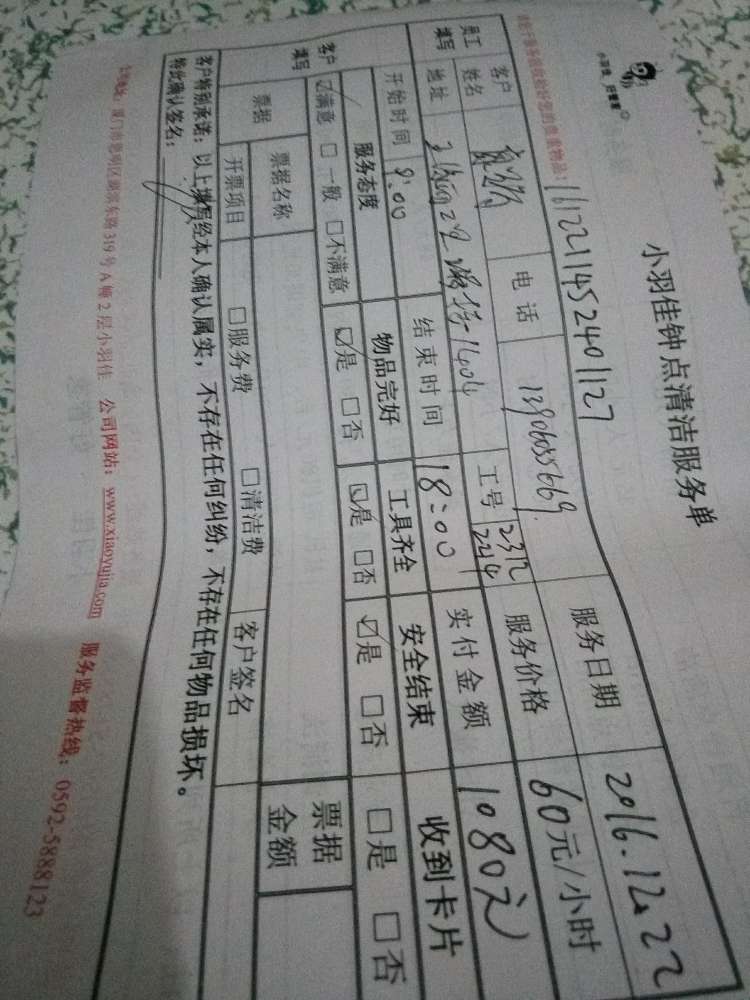 小羽佳钟点清洁服务单
小羽佳 好管家
1612211452401127
员工填写 客户姓名 电话 服务日期 2016.12.22
地址 1604 工号 2312 224 服务价格 60元/小时
开始时间 9:00 结束时间 18:00 实付金额 1080元
客户填写 服务态度 物品完好 工具齐全 安全结束 收到卡片
☑满意 □一般 □不满意 ☑是 □否 ☑是 □否 ☑是 □否 □是 □否
票据 票据名称 票据金额
开票项目 □服务费 □清洁费 客户签名
客户特别承诺：以上填写经本人确认属实，不存在任何纠纷，不存在任何物品损坏。
特此确认签名：
319号A幢2层小羽佳 公司网站：www.xiaoyujia.com 服务监督热线：0592-5888123